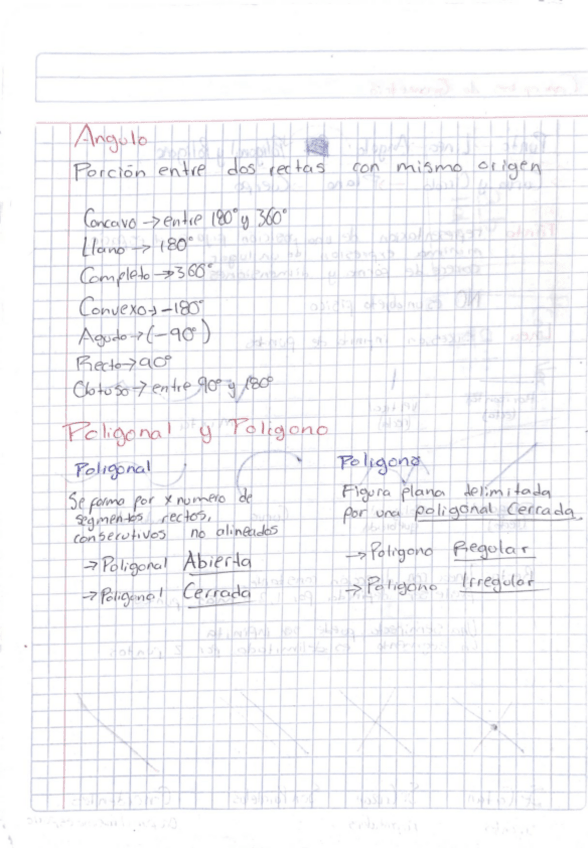 Angulo
Porción entre dos rectas con mismo origen
Concavo → entre 180° y 360°
Llano → 180°
Completo → 360°
Convexo → -180°
Agudo → (-90°)
Recto → 90°
Obtuso → entre 90° y 180°
Poligonal y Poligono
Poligonal
Se forma por x numero de
segmentos rectos,
consecutivos no alineados
→ Poligonal Abierta
→ Poligonal Cerrada
Poligono
Figura plana delimitada
por una poligonal Cerrada.
→ Poligono Regular
→ Poligono Irregular